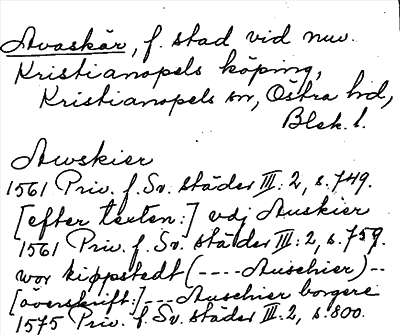 Avaskär, f. stad vid nuv.
Kristianopels köping,
Kristianopels sn, Östra hd,
Blek. l.
Awskier
1561 Priv. f. Sv. städer III: 2, s. 749.
[efter texten:] vdj Auskier
1561 Priv. f. Sv. städer III: 2, s. 759.
wor kiøpstedt (---- Auschier) --
[överskrift:] --- Auschier borgere
1575 Priv. f. Sv. städer III: 2, s. 800.